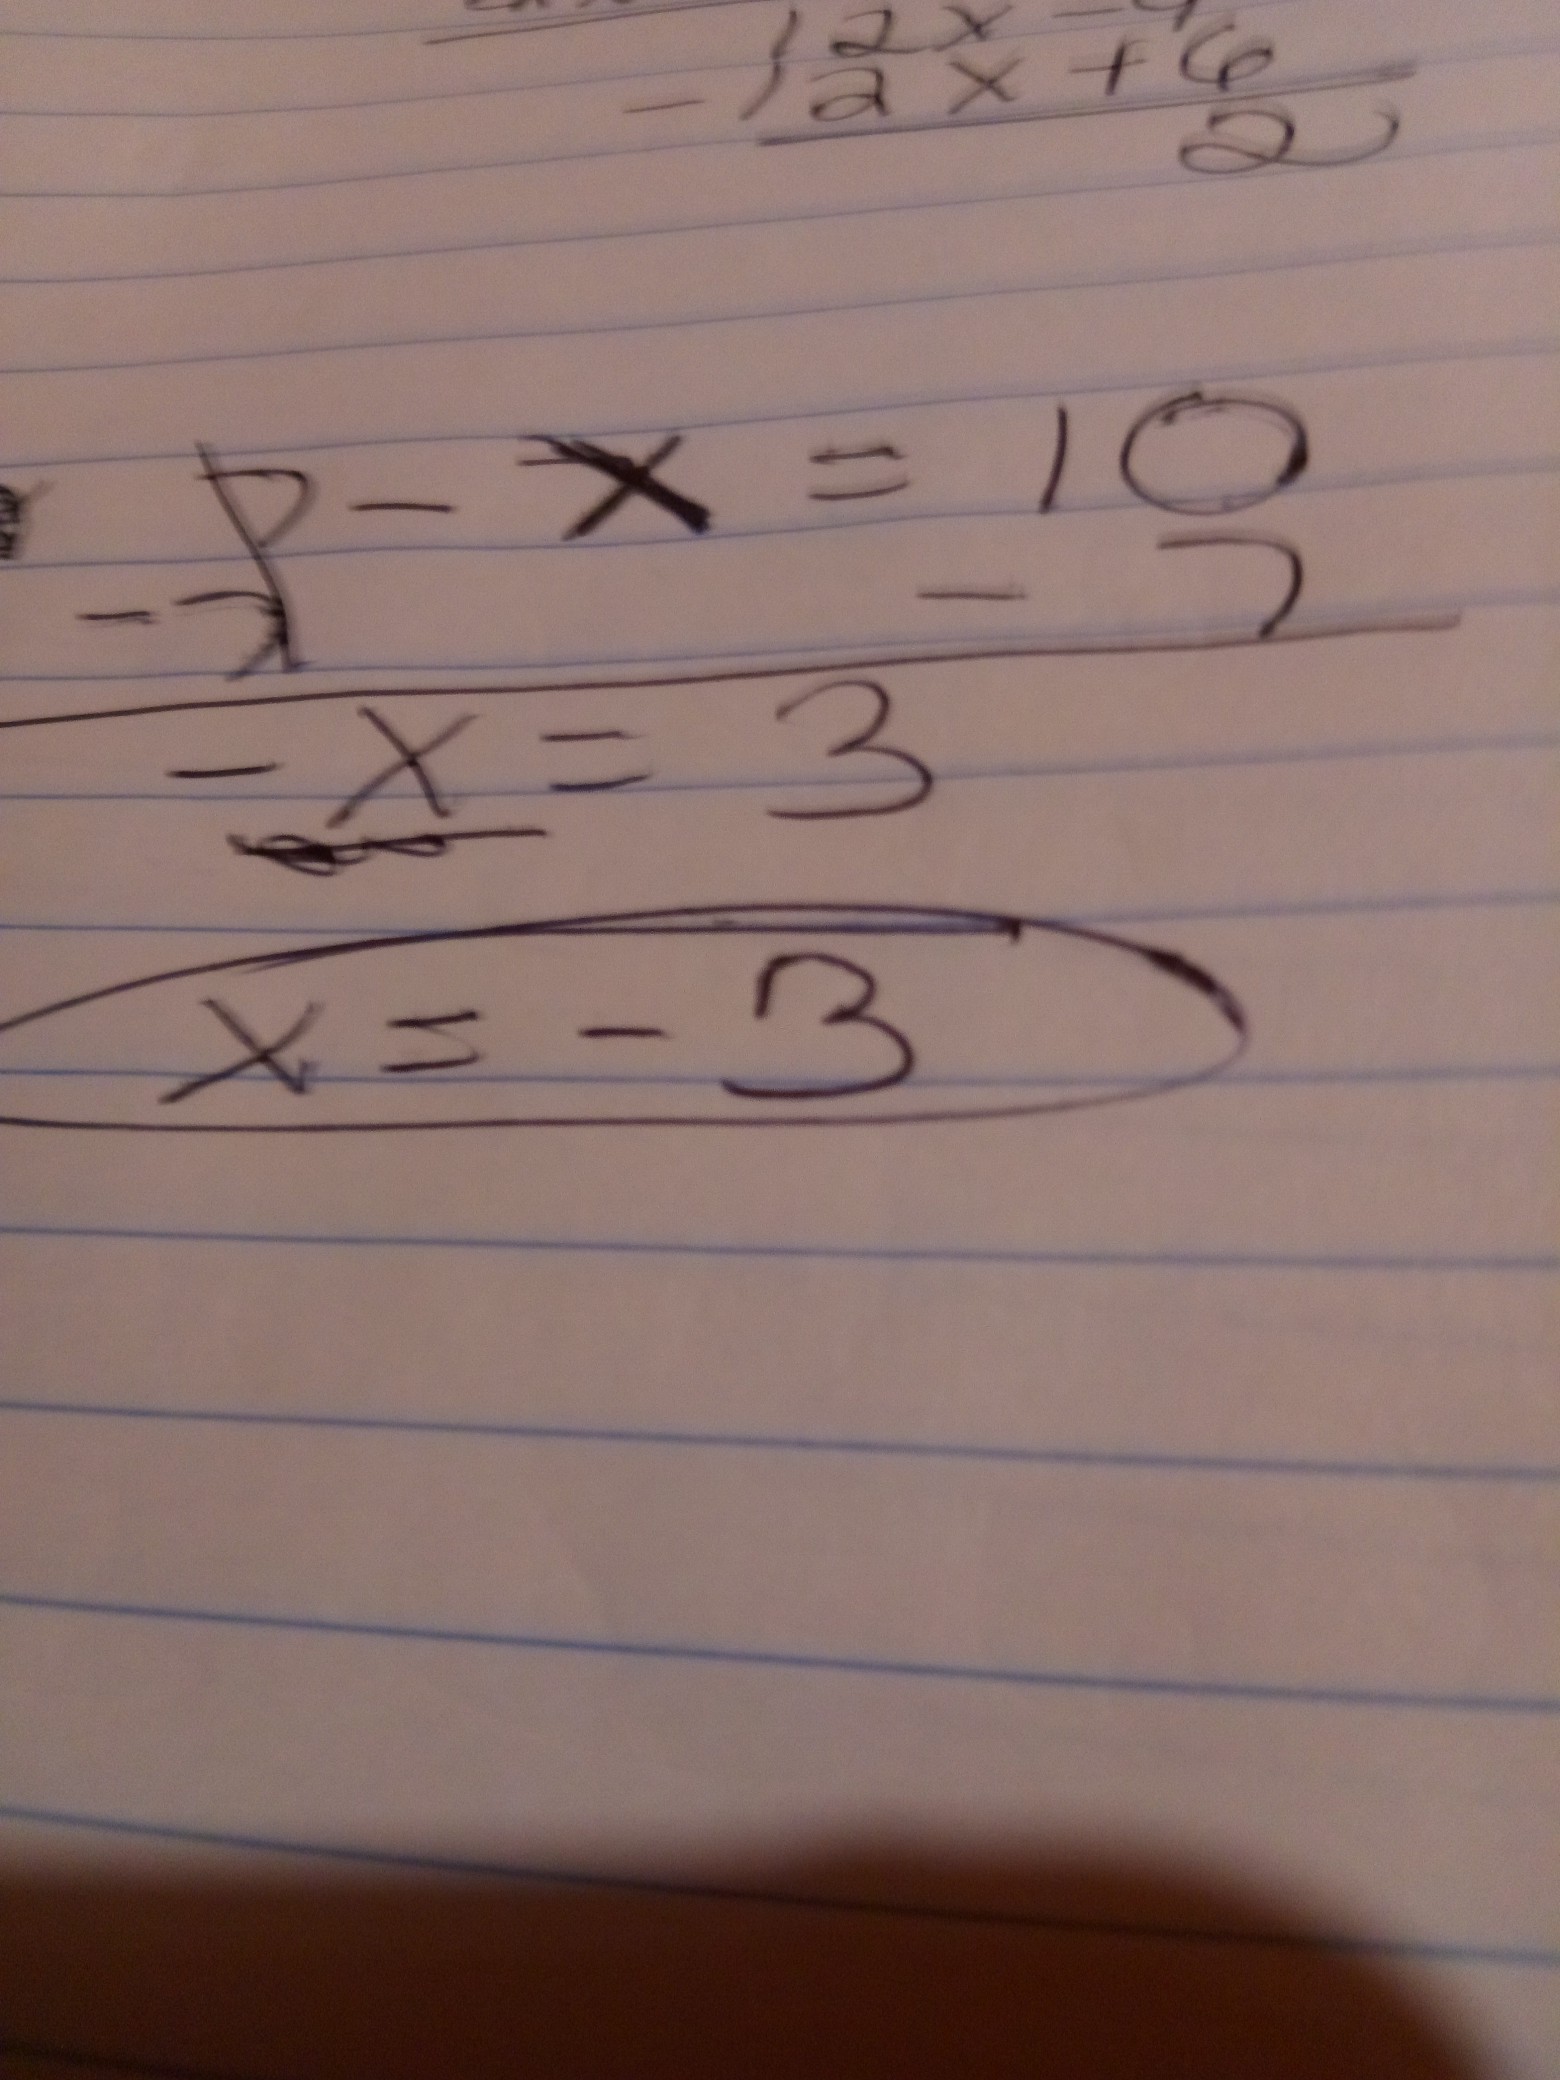 12x - 
- 12x + 6
2
7 - x = 10
- 7 - 7
- x = 3
x = - 3